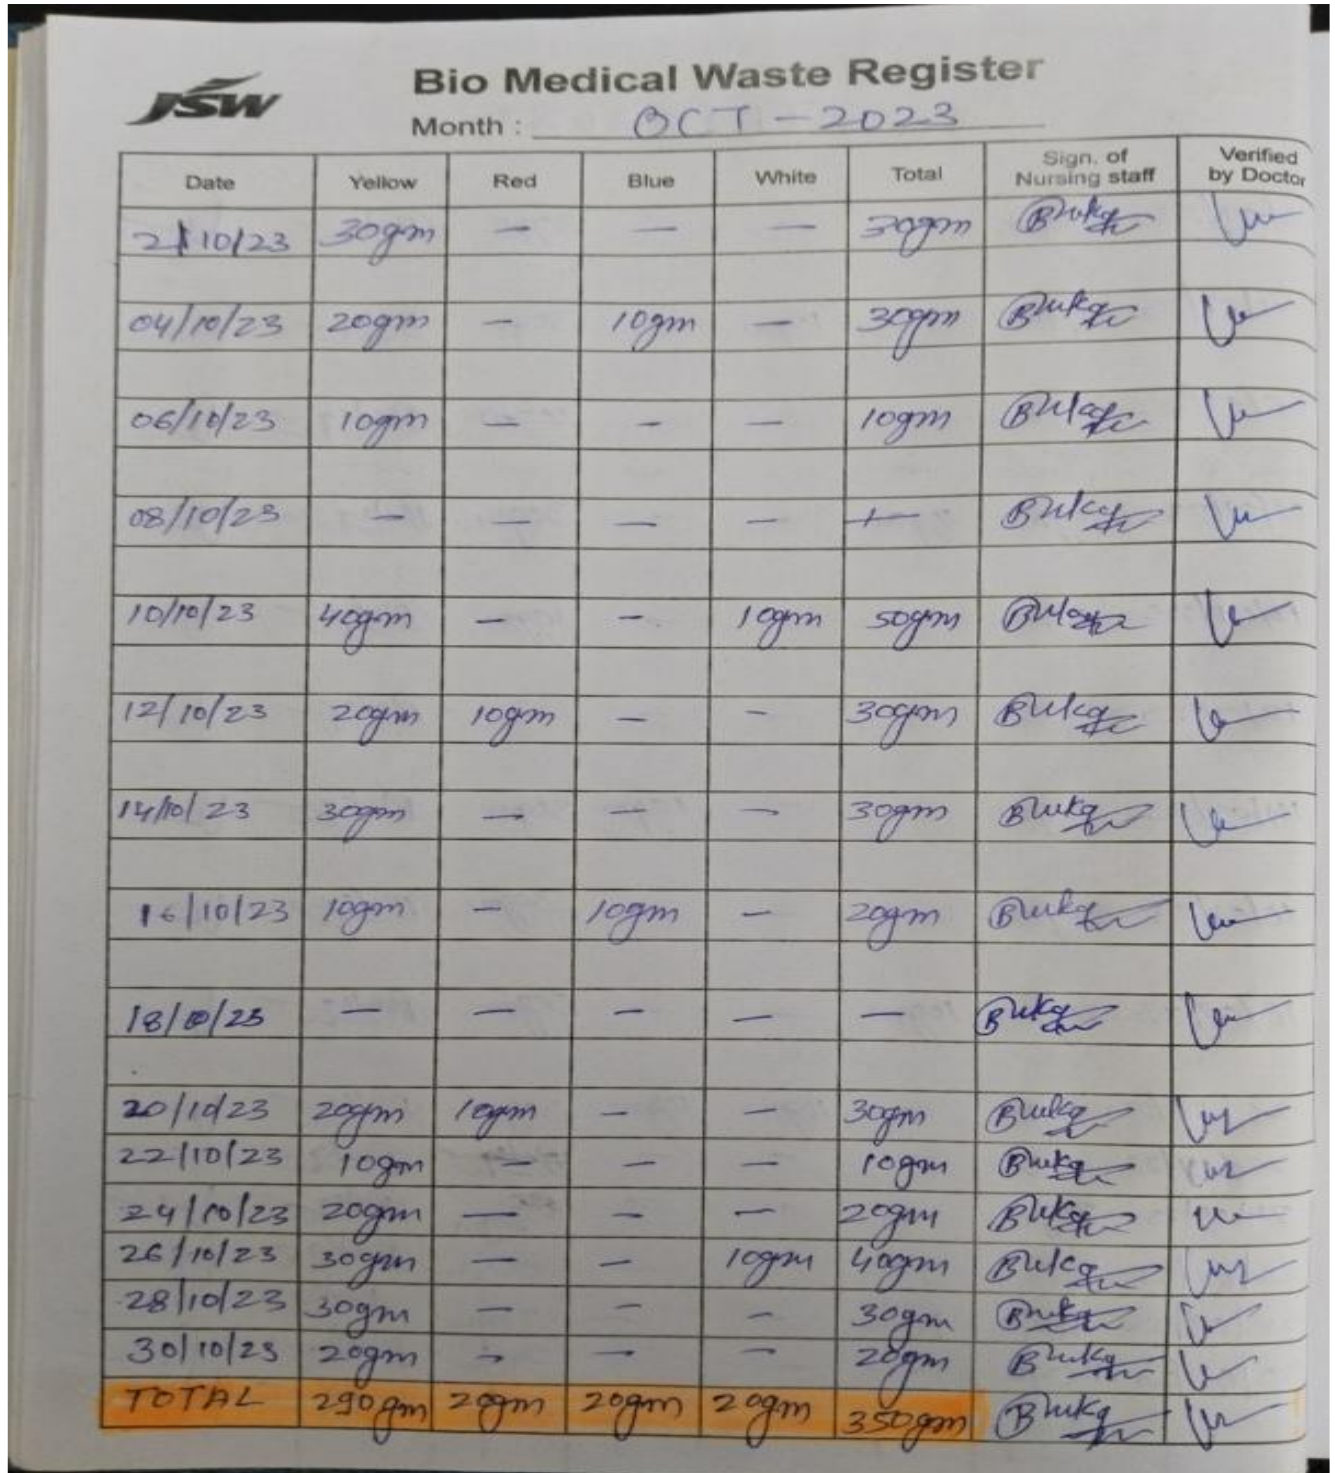 JSW
Bio Medical Waste Register
Month : OCT - 2023
Date Yellow Red Blue White Total Sign. of Nursing staff Verified by Doctor
2/10/23 30gm — — — 30gm
04/10/23 20gm — 10gm — 30gm
06/10/23 10gm — — — 10gm
08/10/23 — — — — —
10/10/23 40gm — — 10gm 50gm
12/10/23 20gm 10gm — — 30gm
14/10/23 30gm — — — 30gm
16/10/23 10gm — 10gm — 20gm
18/10/23 — — — — —
20/10/23 20gm 10gm — — 30gm
22/10/23 10gm — — — 10gm
24/10/23 20gm — — — 20gm
26/10/23 30gm — — 10gm 40gm
28/10/23 30gm — — — 30gm
30/10/23 20gm — — — 20gm
TOTAL 290gm 20gm 20gm 20gm 350gm